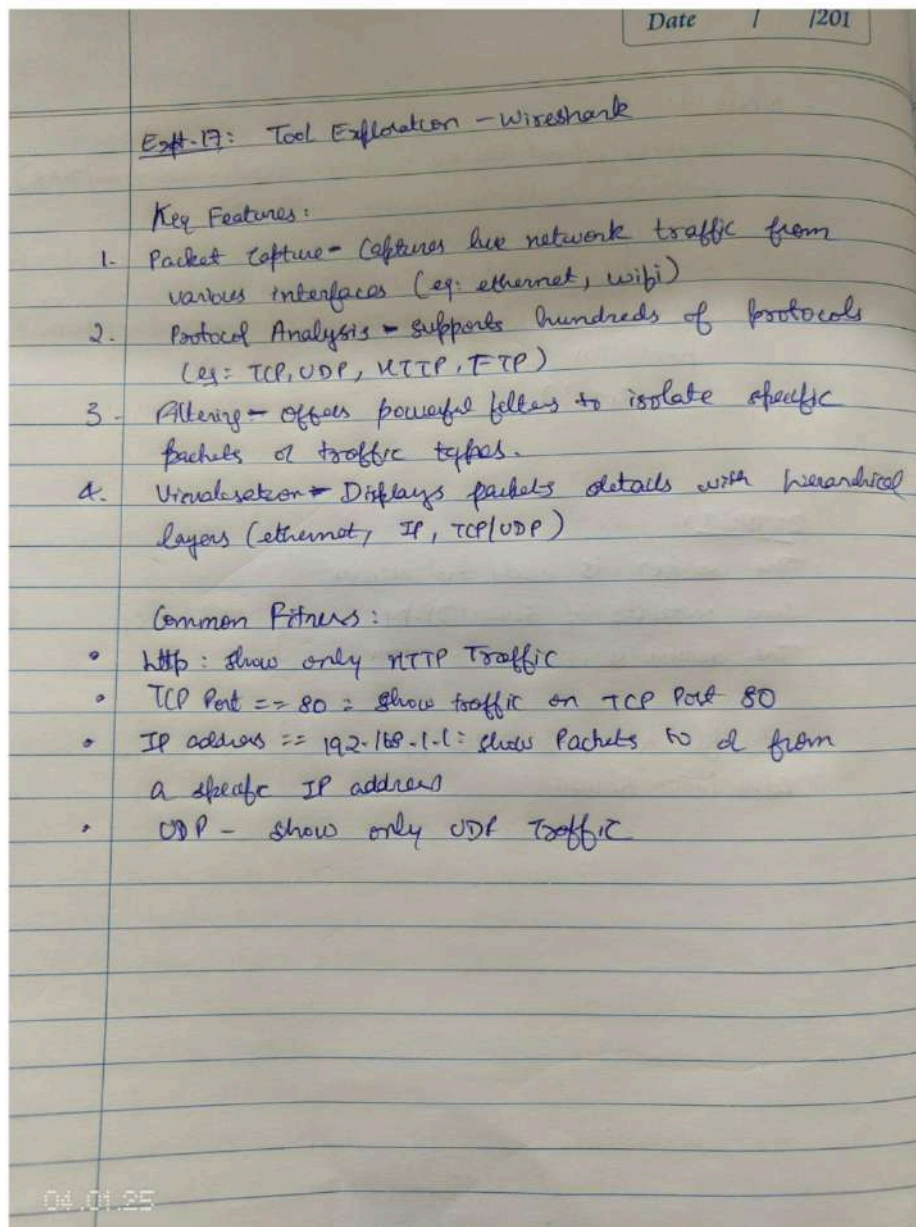 Date / /201
Expt-17: Tool Exploration - Wireshark
Key Features:
1. Packet Capture - Captures live network traffic from
various interfaces (eg: ethernet, wifi)
2. Protocol Analysis - supports hundreds of protocols
(eg: TCP, UDP, HTTP, FTP)
3. Filtering - offers powerful filters to isolate specific
packets or traffic types.
4. Visualisation - Displays packets details with hierarchical
layers (ethernet, IP, TCP/UDP)
Common Fitners:
• http: show only HTTP Traffic
• TCP Port == 80 : show traffic on TCP Port 80
• IP address == 192.168.1.1: show Packets to or from
a specific IP address
• UDP - show only UDP Traffic
04.01.25